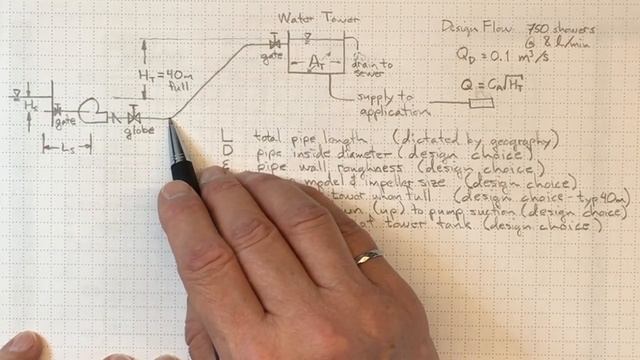 Water Tower
gate
H_T = 40m
full
A_T
drain to
sewer
supply to
application
Design Flow: 750 showers
@ 8 L/min
Q_D = 0.1 m³/s
Q = C_A √H_T
H_s
gate
globe
L_s
L total pipe length (dictated by geography)
D pipe inside diameter (design choice)
ε pipe wall roughness (design choice)
model & impeller size (design choice)
tower when full (design choice - typ 40m)
(up) to pump suction (design choice)
of tower tank (design choice)